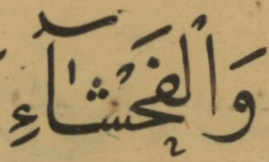 وَالْفَحْشَآءِ